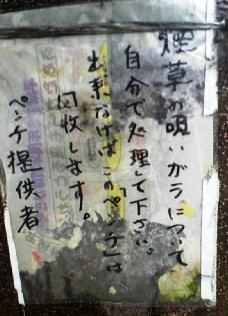 煙草の吸いガラについて
自分で処理して下さい。
出来なければこの「ベンチ」は
回収します。
ベンチ提供者